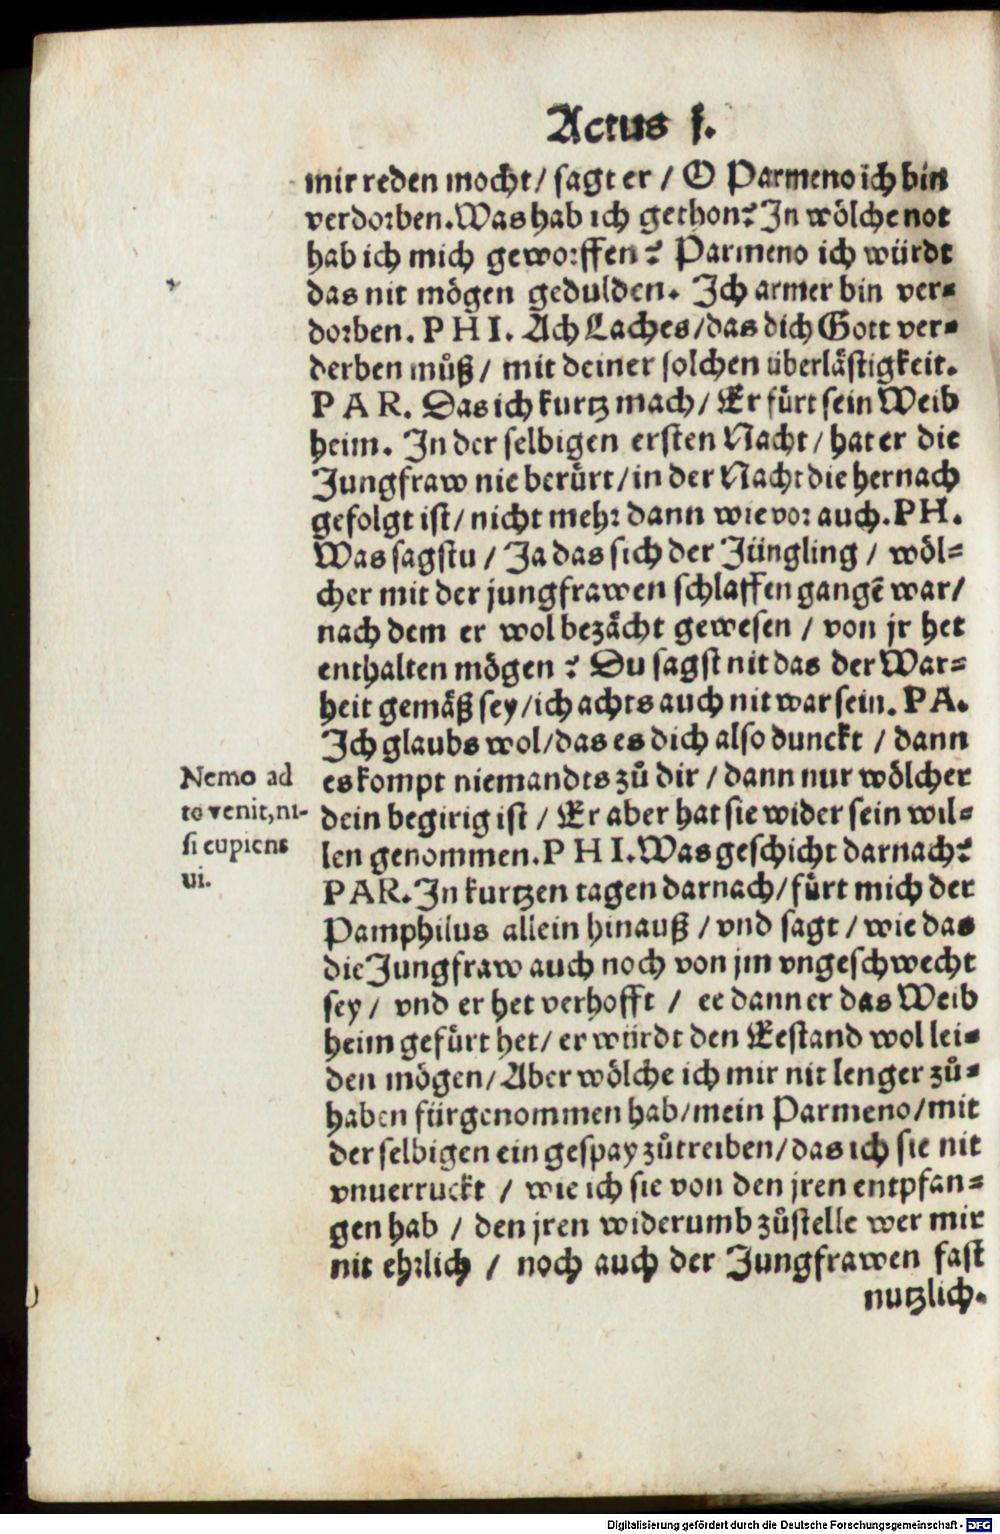 Actus j.
mir reden mocht/ sagt er / O Parmeno ich bin
verdorben. Was hab ich gethon? Jn wölche not
hab ich mich geworffen? Parmeno ich würdt
das nit mögen gedulden. Jch armer bin ver-
dorben. P H I. Ach Laches/das dich Gott ver-
derben můß/ mit deiner solchen überlästigkeit.
P A R. Das ich kurtz mach/ Er fürt sein Weib
heim. Jn der selbigen ersten Nacht/ hat er die
Jungfraw nie berürt/in der Nacht die hernach
gefolgt ist/ nicht mehr dann wie vor auch. PH.
Was sagstu / Ja das sich der Jüngling / wöl-
cher mit der jungfrawen schlaffen gangẽ war/
nach dem er wol bezächt gewesen / von jr het
enthalten mögen? Du sagst nit das der War-
heit gemäß sey/ich achts auch nit war sein. P A.
Jch glaubs wol/das es dich also dunckt / dann
es kompt niemandts zů dir / dann nur wölcher
dein begirig ist / Er aber hat sie wider sein wil-
len genommen. P H I. Was geschicht darnach?
P A R. Jn kurtzen tagen darnach/fürt mich der
Pamphilus allein hinauß / vnd sagt / wie das
die Jungfraw auch noch von jm vngeschwecht
sey / vnd er het verhofft / ee dann er das Weib
heim gefürt het/ er würdt den Eestand wol lei-
den mögen/Aber wölche ich mir nit lenger zů-
haben fürgenommen hab/mein Parmeno/mit
der selbigen ein gespay zůtreiben/das ich sie nit
vnuerruckt / wie ich sie von den jren entpfan-
gen hab / den jren widerumb zůstelle wer mir
nit ehrlich / noch auch der Jungfrawen fast
nutzlich.
Nemo ad
te venit, ni-
si cupiens
ui.
Digitalisierung gefördert durch die Deutsche Forschungsgemeinschaft - DFG